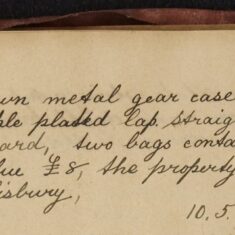 wn metal gear case
ble plated lap. straig
ard, two bags conta
lue £8, the property
lisbury,
10.5.